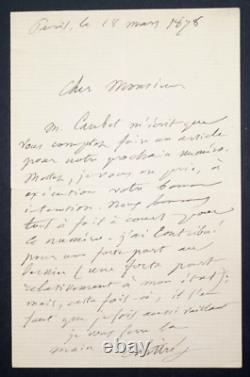 Paris, le 18 mars 1878
Cher Monsieur
M. Caubet m'écrit que
vous comptez faire un article
pour notre prochain numéro.
Mettez, je vous en prie, à
exécution votre bonne
intention. Nous sommes
tout à fait à court pour
ce numéro. J'ai contribué
pour une forte part au
dernier (une forte part
relativement à mon état);
mais, cette fois-ci, il
faut que je sois aussi vaillant
je vous serre la
main
E. Littré